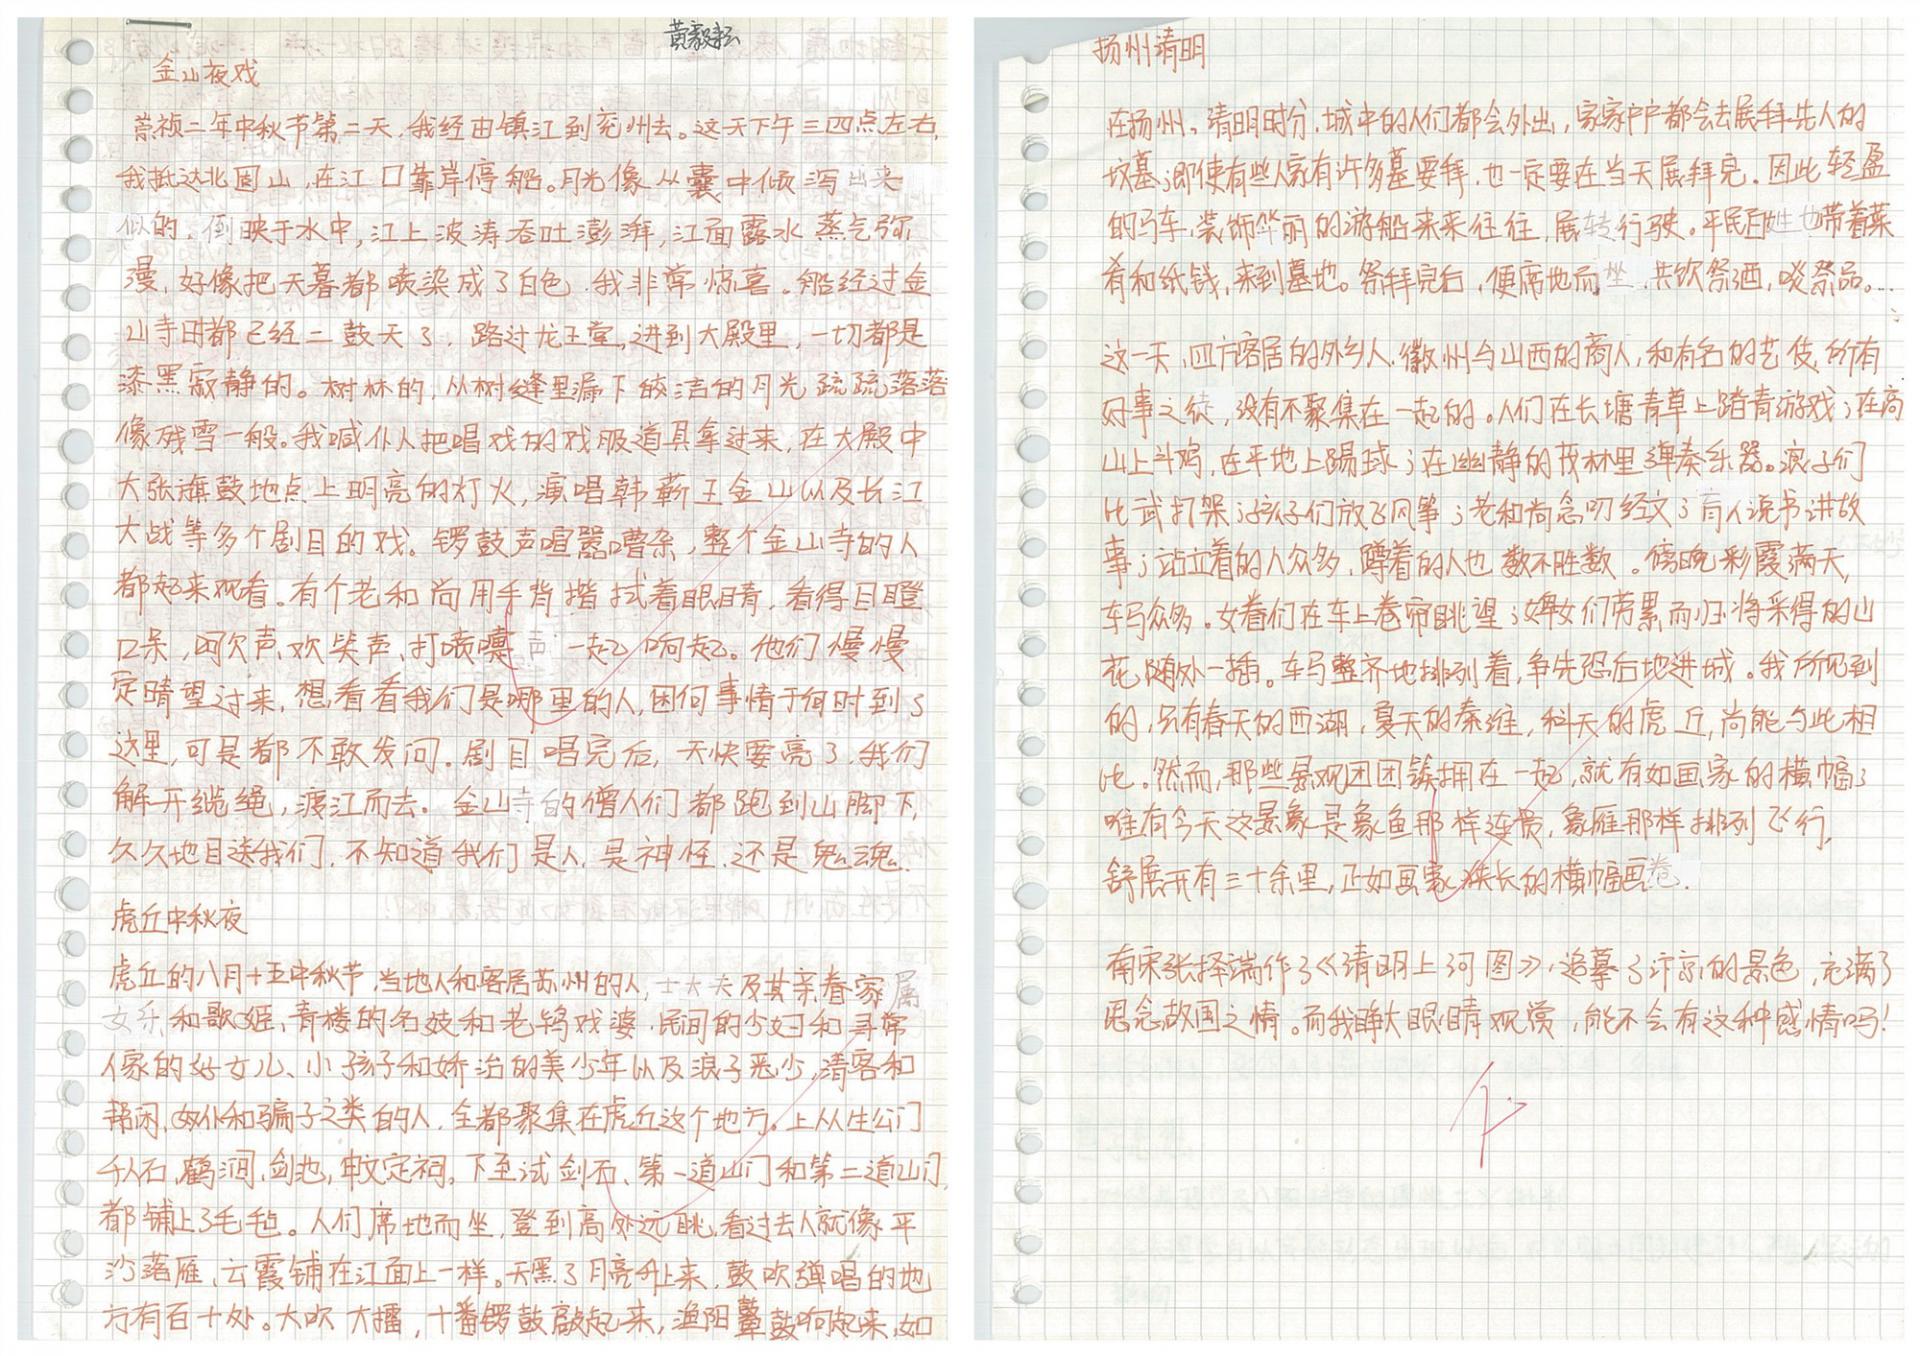 黄毅耘
金山夜戏
崇祯二年中秋节第二天,我经由镇江到兖州去。这天下午三四点左右,
我抵达北固山,在江口靠岸停船。月光像从囊中倾泻出来
似的,倒映于水中,江上波涛吞吐澎湃,江面露水蒸气弥
漫,好像把天幕都喷染成了白色,我非常惊喜。船经过金
山寺时都已经二鼓天了,路过龙王堂,进到大殿里,一切都是
漆黑寂静的。树林的,从树缝里漏下皎洁的月光疏疏落落
像残雪一般。我喊仆人把唱戏的戏服道具拿过来,在大殿中
大张旗鼓地点上明亮的灯火,演唱韩蕲王金山以及长江
大战等多个剧目的戏。锣鼓声喧嚣嘈杂,整个金山寺的人
都起来观看。有个老和尚用手背揩拭着眼睛,看得目瞪
口呆,呵欠声、欢笑声、打喷嚏声一起响起。他们慢慢
定睛望过来,想看看我们是哪里的人,因何事情于何时到了
这里,可是都不敢发问。剧目唱完后,天快要亮了,我们
解开缆绳,渡江而去。金山寺的僧人们都跑到山脚下,
久久地目送我们,不知道我们是人、是神怪、还是鬼魂。
虎丘中秋夜
虎丘的八月十五中秋节,当地人和客居苏州的人,士大夫及其亲眷家属
女乐和歌姬、青楼的名妓和老鸨戏婆、民间的少妇和寻常
人家的好女儿、小孩子和娇冶的美少年以及浪子恶少,清客和
帮闲、奴仆和骗子之类的人,全都聚集在虎丘这个地方。上从生公门
千人石、鹤涧、剑池、申文定祠。下至试剑石、第一道山门和第二道山门,
都铺上了毛毡。人们席地而坐,登到高处远眺,看过去人就像平
沙落雁、云霞铺在江面上一样。天黑了月亮升上来,鼓吹弹唱的地
方有百十处。大吹大擂,十番锣鼓敲起来,渔阳鼙鼓响起来,如
扬州清明
在扬州,清明时分,城中的人们都会外出,家家户户都会去展拜先人的
坟墓;即使有些人家有许多墓要拜,也一定要在当天展拜完。因此轻盈
的马车、装饰华丽的游船来来往往,展转行驶。平民百姓也带着菜
肴和纸钱,来到墓地。祭拜完后,便席地而坐,共饮祭酒,啖祭品。…
这一天,四方客居的外乡人、徽州与山西的商人,和有名的艺伎,所有
好事之徒,没有不聚集在一起的。人们在长塘青草上踏青游戏;在高
山上斗鸡,在平地上踢球;在幽静的茂林里弹奏乐器。浪子们
比武打架;孩子们放飞风筝;老和尚念叨经文;盲人说书讲故
事;站立着的人众多,蹲着的人也数不胜数。傍晚彩霞满天,
车马众多。女眷们在车上卷帘眺望;婢女们劳累而归,将采得的山
花随处一插。车马整齐地排列着,争先恐后地进城。我所见到
的,只有春天的西湖,夏天的秦淮,秋天的虎丘,尚能与此相
比。然而,那些景观团团簇拥在一起,就有如画家的横幅;
唯有今天这景象是象鱼那样连贯,象雁那样排列飞行,
舒展开有三十余里,正如画家狭长的横幅画卷。
南宋张择端作了《清明上河图》,追摹了汴京的景色,充满了
思念故国之情。而我睁大眼睛观赏,能不会有这种感情吗!